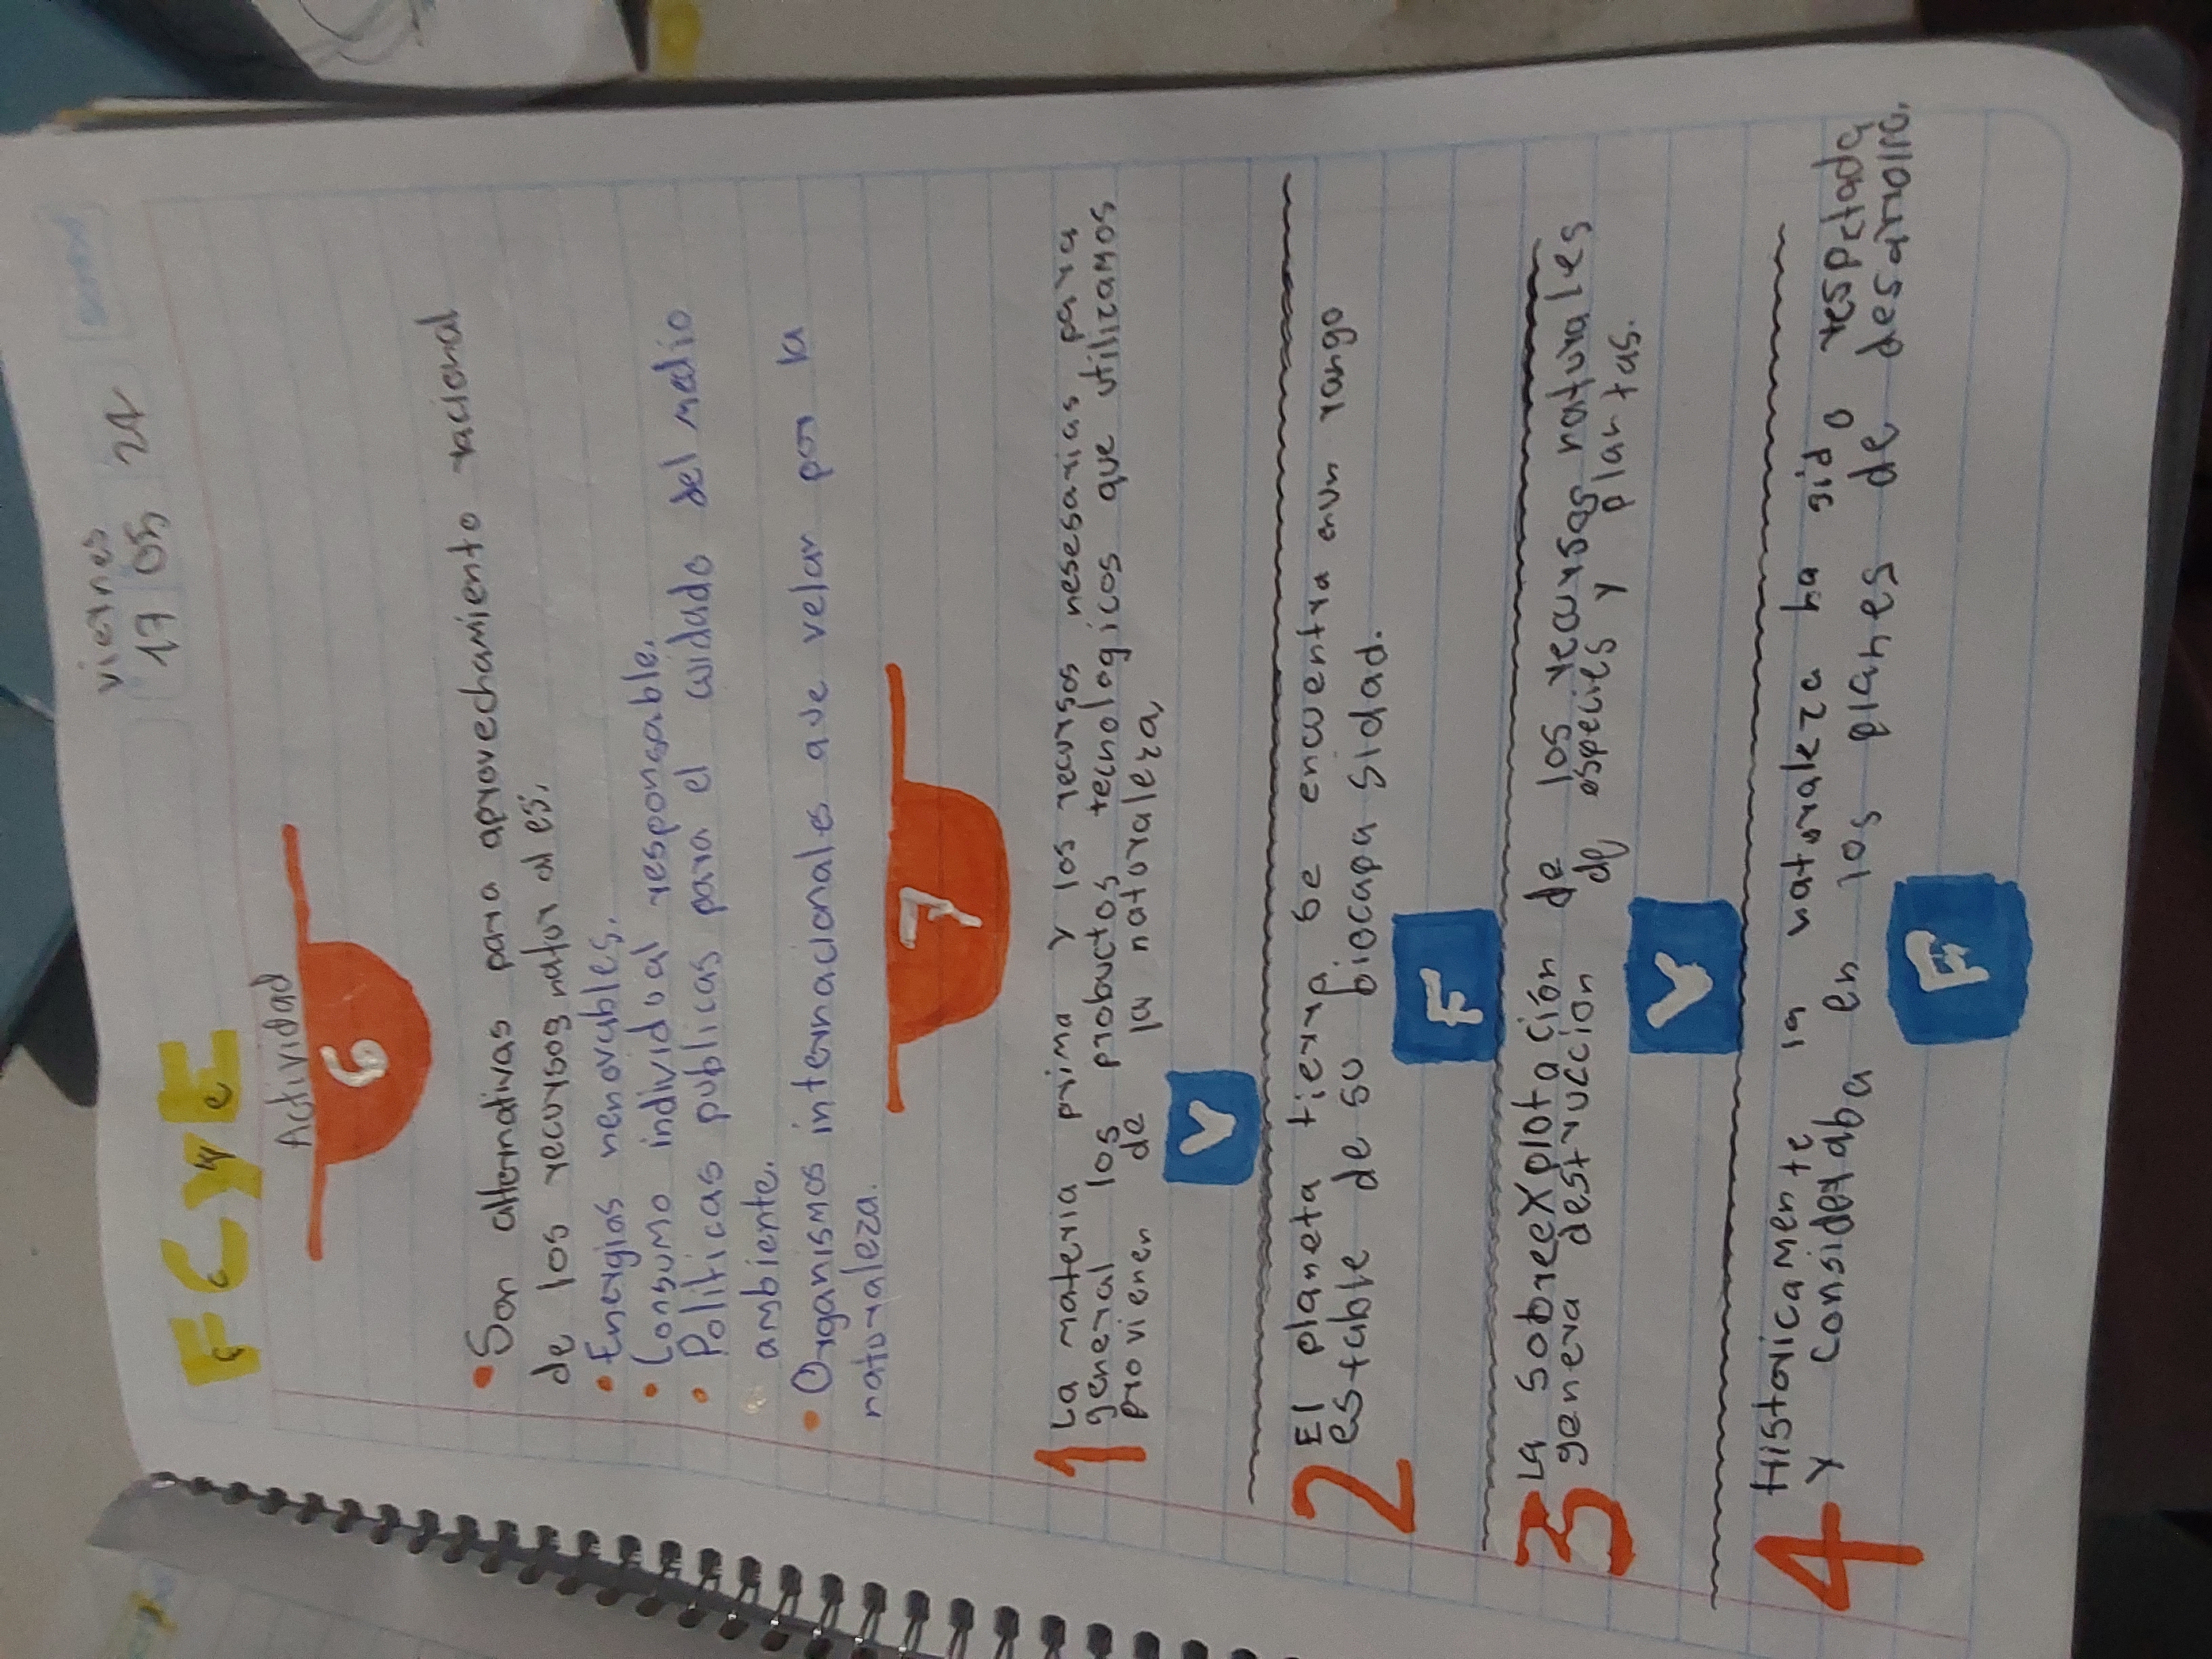 viernes
17 05 24
FCyE
Actividad
6
• Son alternativas para aprovechamiento racional
de los recursos natur al es.
• Energias renovables.
• Consumo individual responsable.
• Politicas publicas para el cuidado del medio
ambiente.
• Organismos internacionales que velar por la
naturaleza.
7
1 La materia prima y los recursos nesesarias para
general los productos tecnologicos que utilizamos
provienen de la naturaleza,
V
2 El planeta tierra se encuentra enun rango
estable de su biocapa sidad.
F
3 La sobreexplotación de los recursos naturales
genera destruccion de especies y plan tas.
V
4 Historicamente la naturaleza ha sido respetada
y considerada en los planes de desarrollo.
F